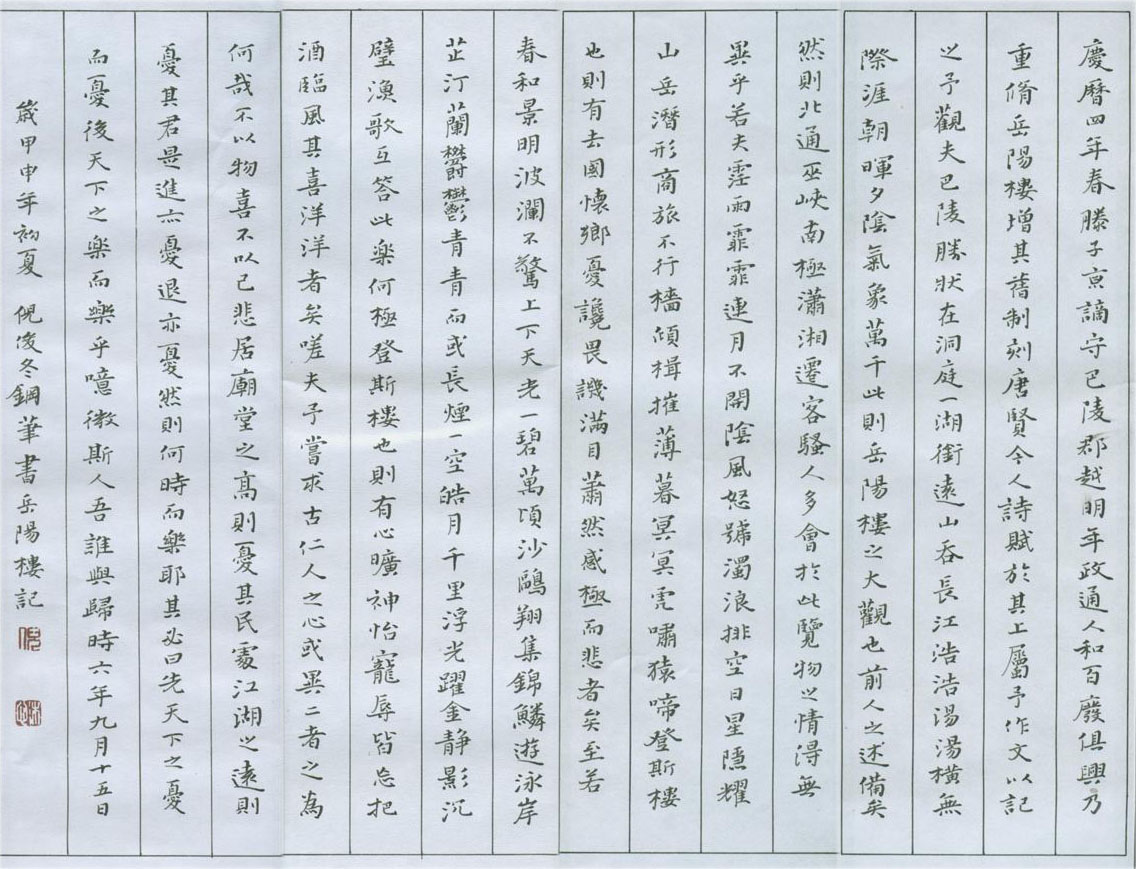 慶曆四年春滕子京謫守巴陵郡越明年政通人和百廢俱興乃
重脩岳陽樓增其舊制刻唐賢今人詩賦於其上屬予作文以記
之予觀夫巴陵勝狀在洞庭一湖銜遠山吞長江浩浩湯湯橫無
際涯朝暉夕陰氣象萬千此則岳陽樓之大觀也前人之述備矣
然則北通巫峽南極瀟湘遷客騷人多會於此覽物之情得無
異乎若夫霪雨霏霏連月不開陰風怒號濁浪排空日星隱耀
山岳潛形商旅不行檣傾楫摧薄暮冥冥虎嘯猿啼登斯樓
也則有去國懷鄉憂讒畏譏滿目蕭然感極而悲者矣至若
春和景明波瀾不驚上下天光一碧萬頃沙鷗翔集錦鱗遊泳岸
芷汀蘭欝鬱青青而或長煙一空皓月千里浮光躍金静影沉
璧漁歌互答此樂何極登斯樓也則有心曠神怡寵辱皆忘把
酒臨風其喜洋洋者矣嗟夫予嘗求古仁人之心或異二者之為
何哉不以物喜不以己悲居廟堂之高則憂其民處江湖之遠則
憂其君是進亦憂退亦憂然則何時而樂耶其必曰先天下之憂
而憂後天下之樂而樂乎噫微斯人吾誰與歸時六年九月十五日
歲甲申年初夏 倪俊冬鋼筆書岳陽樓記